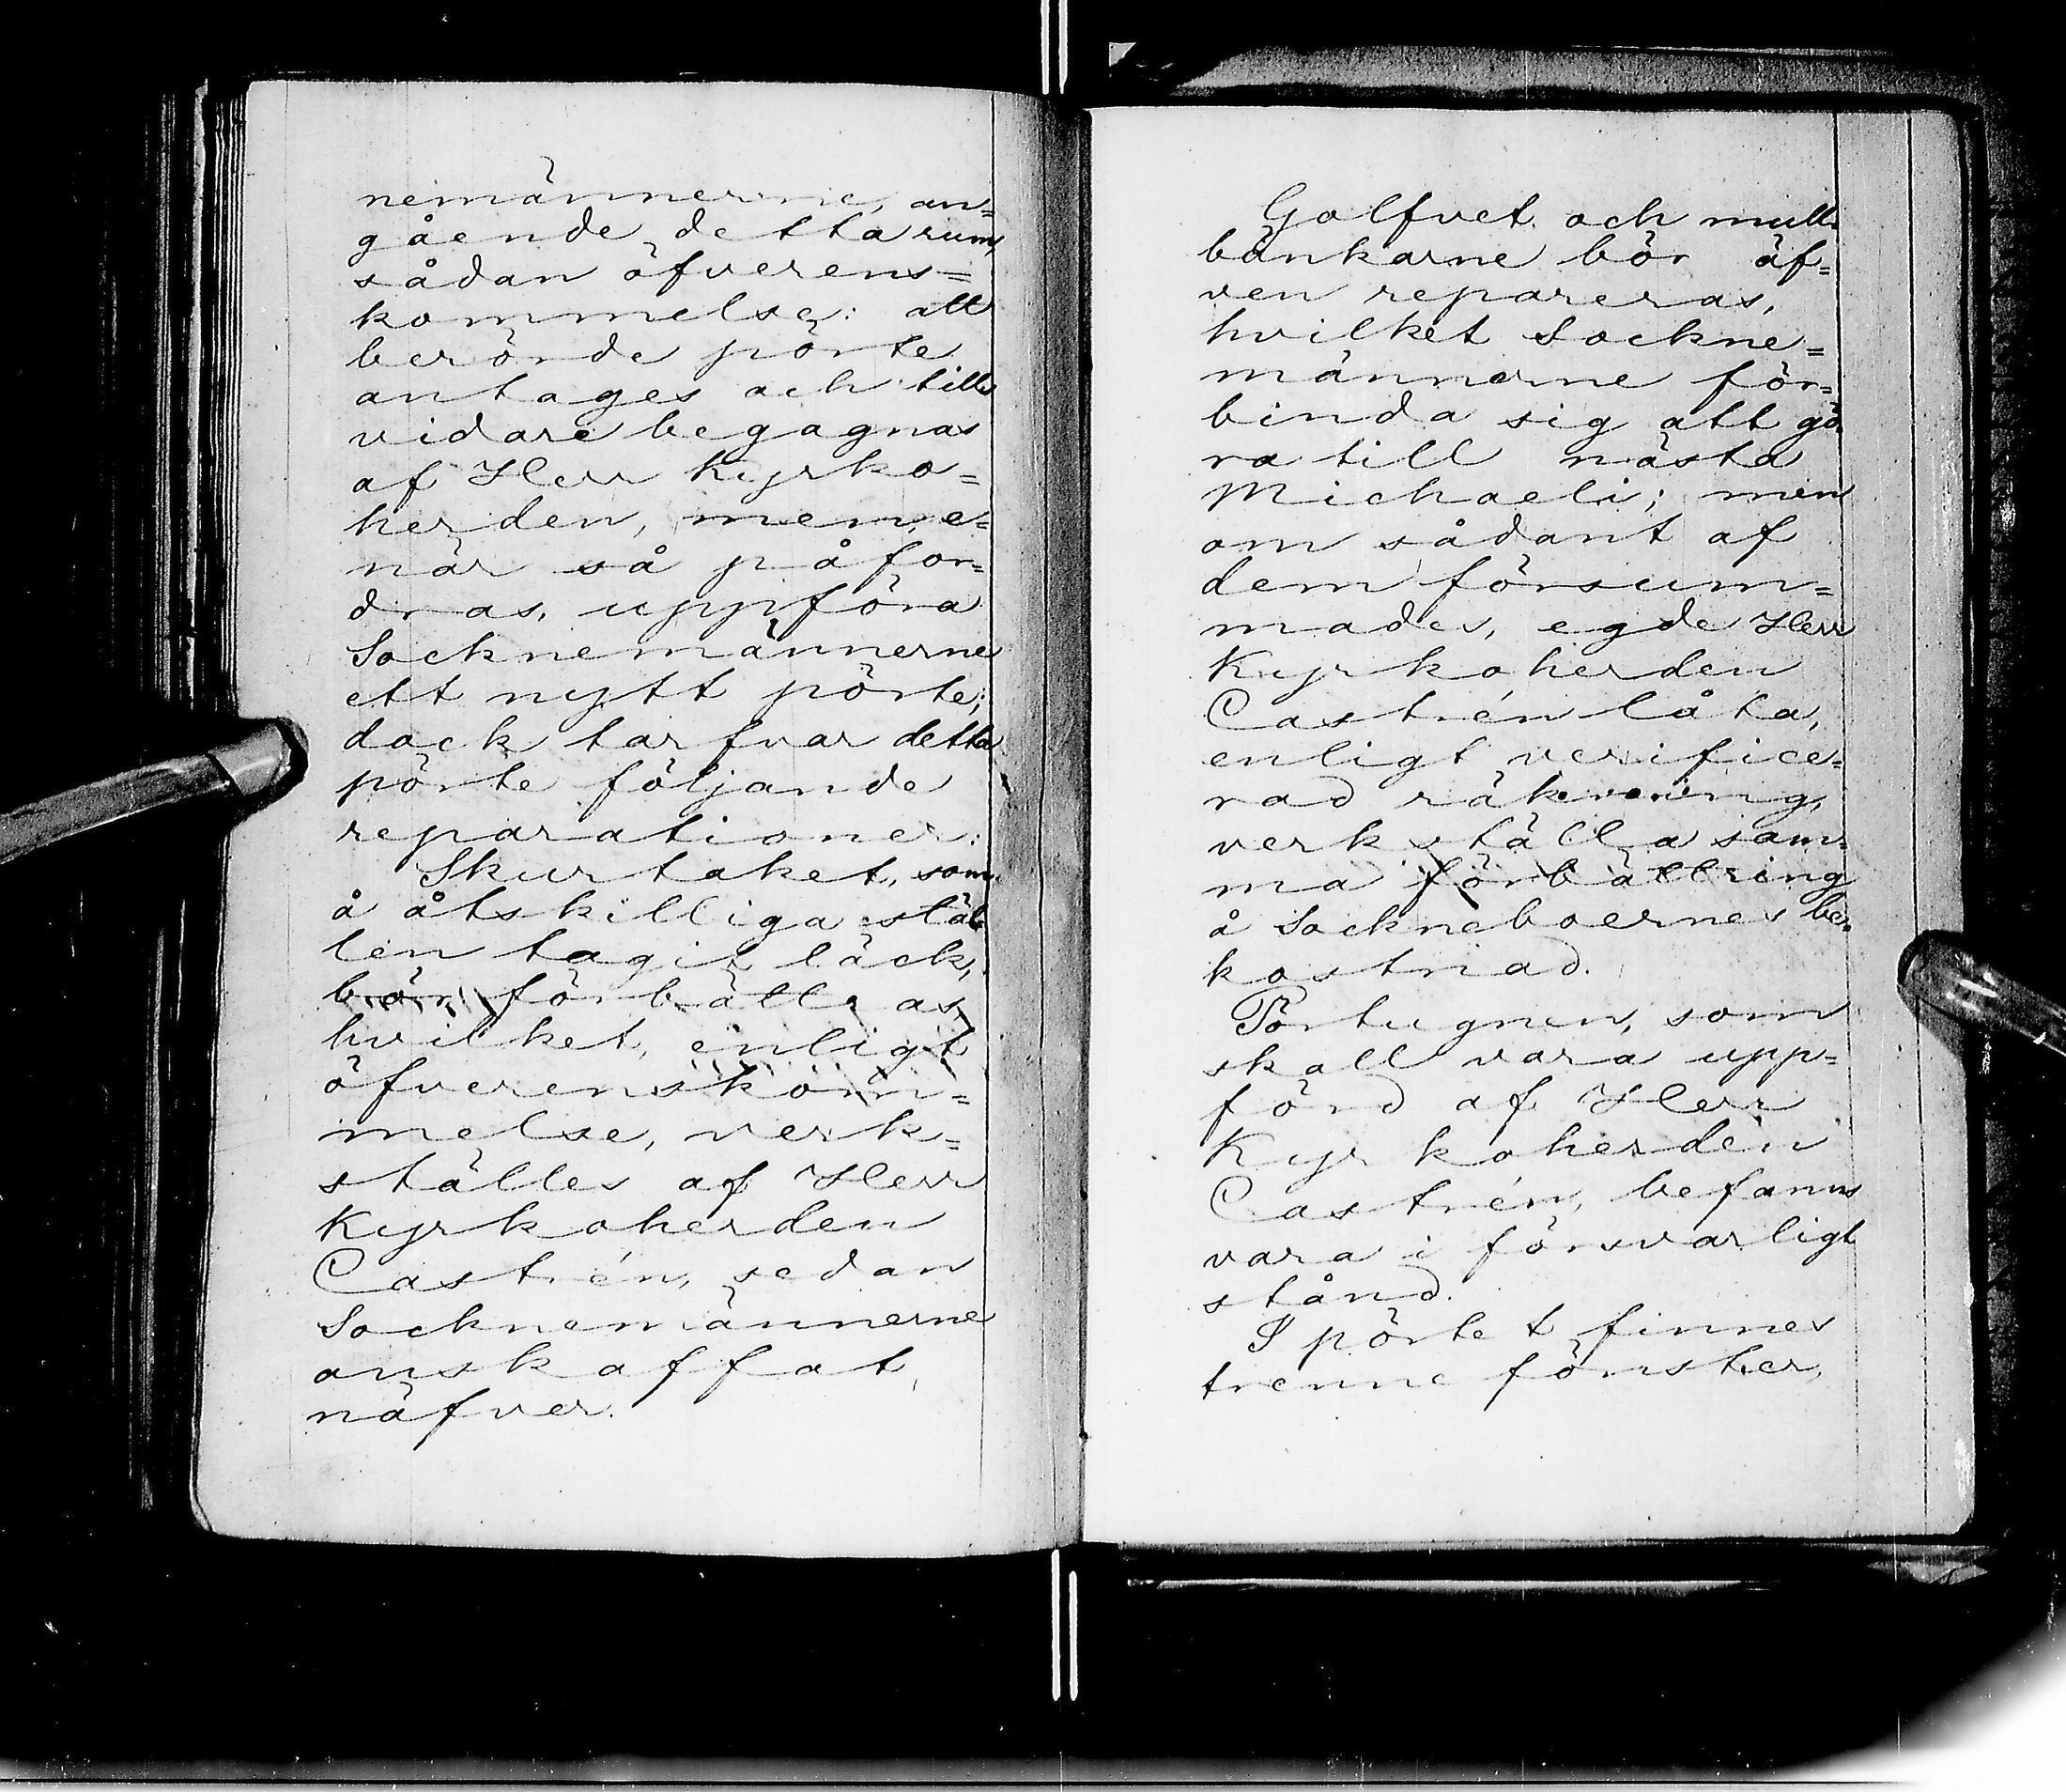 nemännerne, an=
gående detta rum,
sådan öfverens=
kommelse: att
berörde pörte
antages och till
vidare begagnas
af Herr Kyrko=
herden, men, e=
när så påfor=
dras, uppföra
Socknemännerne
ett nytt pörte;
dock tarfvar detta
pörte följande
reparationer:
Skurtaket, som
å åtskilliga stäl
len tagit läck,
bör förbättras,
hvilket, enligt
öfverenskom=
melse, verk=
ställes af Herr
Kyrkoherden
Castrén, sedan
Socknemännerne
anskaffat
näfver.
Golfvet och mull=
bänkarne bör äf=
ven repareras,
hvilket Sockne=
männerne för=
binda sig att gö=
ra till nästa
Michaeli; men
om sådant af
dem försum=
mades, egde Herr
Kyrkoherden
Castrén låta,
enligt verifice=
rad räkning,
verkställa sam=
ma förbättring
å Sockneboernes be=
kostnad.
Pörtugnen, som
skall vara upp=
förd af Herr
Kyrkoherden
Castrén, befanns
vara i försvarligt
stånd.
I pörtet finnes
trenne fönster,